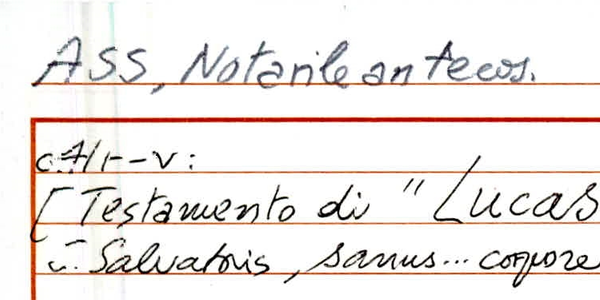 ASS, Notarile antecos.
c. 4/r-v:
[Testamento di "Lucas
Salvatoris, sanus... corpore